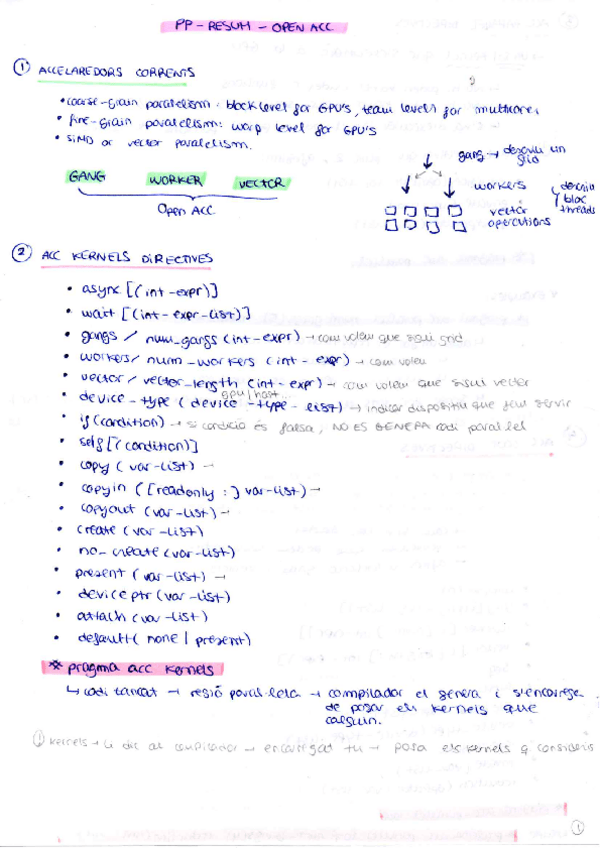 PP - RESUM - OPEN ACC
① ACCELAREDORS CORRENTS
• coarse-grain paralelism: block level for GPU's, team levels for multicore,
• fine-grain paralelism: warp level for GPU's
• SIMD or vector paralelism.
gang → descriu un grid
GANG WORKER VECTOR
Open ACC
workers
vector operations
descriu bloc threads
② ACC KERNELS DIRECTIVES
• async [(int-expr)]
• wait [(int-expr-list)]
• gangs / num_gangs (int-expr) → com volem que sigui grid
• workers / num_workers (int-expr) → com volem
• vector / vector_length (int-expr) → com volem que sigui vector
gpu/host
• device-type (device-type-list) → indicar dispositiu que fem servir
• if(condition) → si condició és falsa, NO ES GENERA codi paral·lel
• self [(condition)]
• copy (var-list) →
• copyin ([readonly:] var-list) →
• copyout (var-list) →
• create (var-list)
• no_create (var-list)
• present (var-list) →
• deviceptr (var-list)
• attach (var-list)
• default (none | present)
* pragma acc kernels
↳ codi tancat → regió paral·lela → compilador el genera i s'encarrega
de posar els kernels que
calguin.
① kernels → li dic al compilador → encarregat tu → posa els kernels q consideris
1